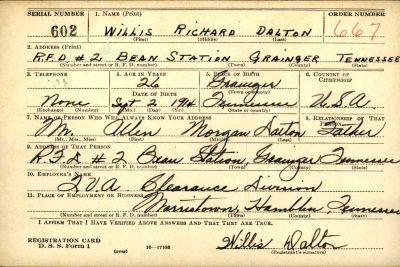 SERIAL NUMBER 1. NAME (Print) ORDER NUMBER
602 WILLIS RICHARD DALTON 667
(First) (Middle) (Last)
2. ADDRESS (Print)
R.F.D # 2 BEAN STATION GRAINGER TENNESSEE
(Number and street or R. F. D. number) (Town) (County) (State)
3. TELEPHONE 4. AGE IN YEARS 5. PLACE OF BIRTH 6. COUNTRY OF CITIZENSHIP
26 Grainger
DATE OF BIRTH (Town or county)
None Sept 2 1914 Tennessee U.S.A.
(Exchange) (Number) (Mo.) (Day) (Yr.) (State or country)
7. NAME OF PERSON WHO WILL ALWAYS KNOW YOUR ADDRESS 8. RELATIONSHIP OF THAT PERSON
Mr. Allen Morgan Dalton Father
(Mr., Mrs., Miss) (First) (Middle) (Last)
9. ADDRESS OF THAT PERSON
R.F.D # 2 Bean Station, Grainger Tennessee
(Number and street or R. F. D. number) (Town) (County) (State)
10. EMPLOYER'S NAME
T.V.A. Clearance Division
11. PLACE OF EMPLOYMENT OR BUSINESS
Morristown, Hamblen, Tennessee
(Number and street or R. F. D. number) (Town) (County) (State)
I AFFIRM THAT I HAVE VERIFIED ABOVE ANSWERS AND THAT THEY ARE TRUE.
REGISTRATION CARD
D. S. S. Form 1 (over) 16—17105 Willis Dalton
(Registrant's signature)